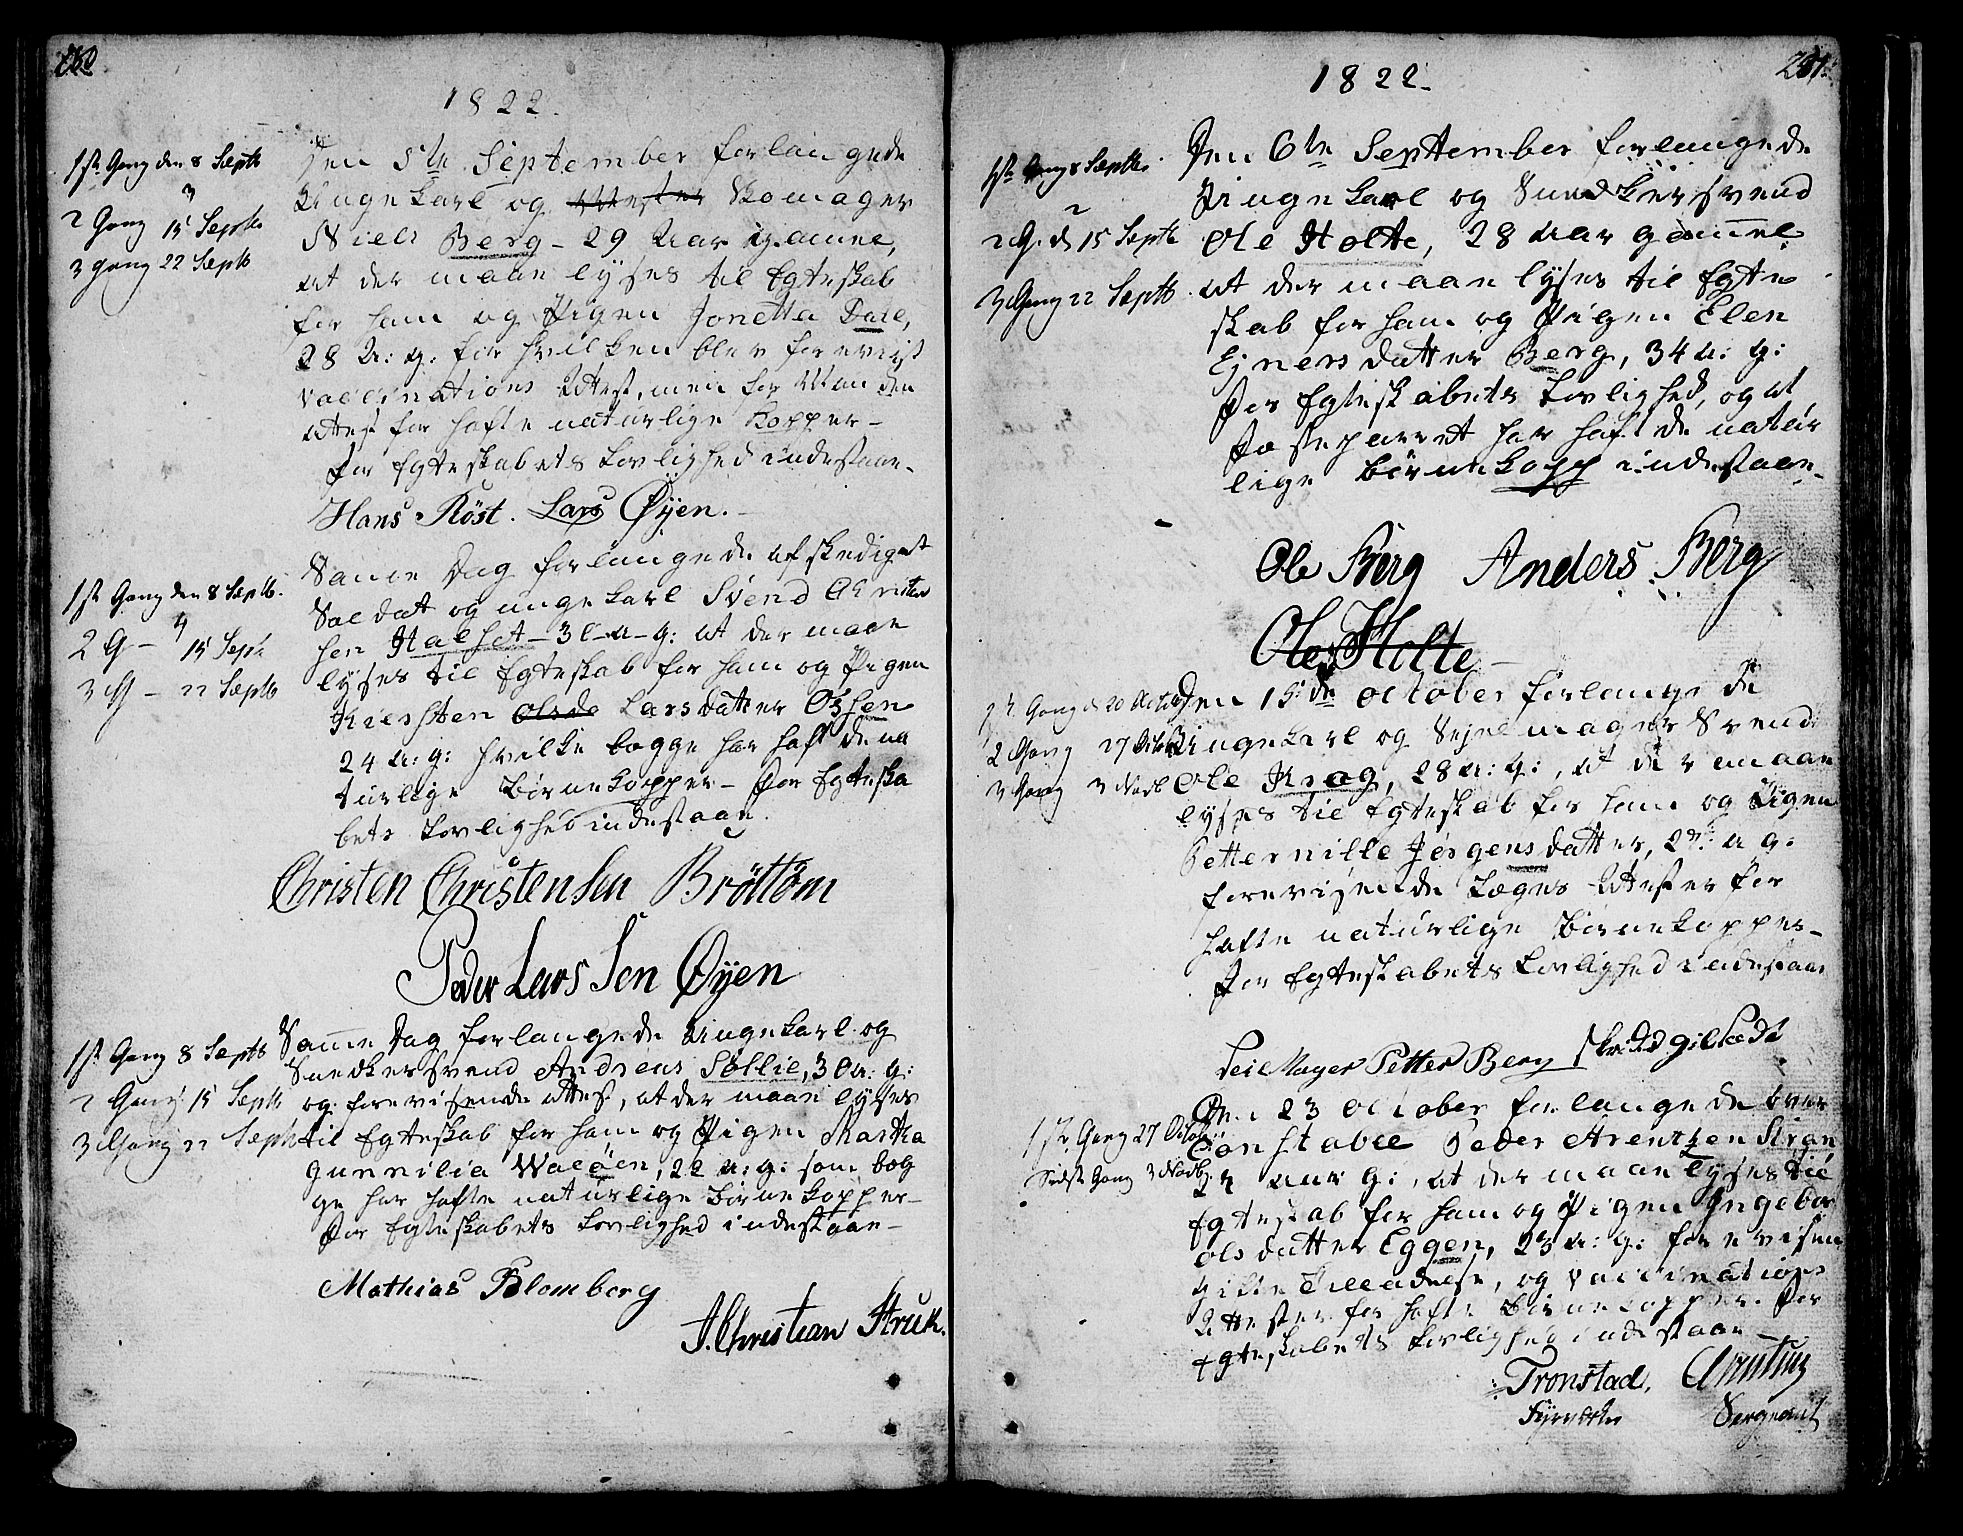 1822.
1ste Gang den 8 Septb
2 Gang 15 Septbr
3 gang 22 Septb
Den 5te September forlangede
Ungekarl og Mester Skomager
Niels Berg - 29 Aar gamel,
at der maae lyses til Egteskab
for ham og Pigen Jonetta Dahl,
28 A: g: for hvilken blev forevist
Vaccinations Attest, men for Manden
Attest for hafte naturlige Kopper -
For Egteskabets Lovlighed indestaae -
Hans Röst. Lars Øyen.
1ste Gang den 8 Septb.
2 G - 15 Sept
3 G - 22 Septb
Samme Dag forlangede afskediget
Soldat og ungekarl Svend Christen
sen Halset - 31 - a - g: at der maae
lyses til Egteskab for ham og Pigen
Kiersten Olsda Larsdatter
24 a: g: hvilke begge har haft de na
turlige Börnekopper - For Egteska
bets Lovlighed indestaae.
Christen Christensen Bröttöm
Peder Lars Sen Øyen
1ste Gang 8 Septb
2 Gang 15 Septb
3 Gang 22 Septb
Samme Dag forlangede Ungekarl og
Snedkersvend Andreas Sollie, 30 a: g:
og forevisende Attest, at der maae lyses
til Egteskab for ham og Pigen Martha
Gunnilia Waløen, 22 a: g: som beg
ge har hafte naturlige Börnekopper -
For Egteskabets Lovlighed indestaae -
Mathias Blomberg
J. Christian Struk.
1822.
1ste Gang 8 Septbr.
2 G. d 15 Septb
3 Gang 22 Septb.
Den 6te September forlangede
Ungekarl og Snedkersvend
Ole Holte, 28 Aar gammel
at der maae lyses til Egte
skab for ham og Pigen Elen
Ejnersdatter Berg, 34 a: g:
For Egteskabets Lovlighed, og at
Parret har haft de natur
lige Börnekopp indestaae -
Ole Berg Anders Berg
Ole Holte
Gang d 20 October
2 Gang 27 Octob
3 Gang 3 Novb
Den 15de October forlangede
Ungekarl og Sejelmager Svend
Ole Krog, 28 a: g:, at der maae
lyses til Egteskab for ham og Pigen
Petternille Jörgensdatter, a g:
forevisende Læges Attester for
hafte naturlige Börnekopper -
For Egteskabets Lovlighed indestaae
Seil Mager Petter Berg
1ste Gang 27 Octob:
Sidste Gang 3 Novb
Den 23 October forlangede over
Constabel Peder Arentzen
Aar g:, at der maae lyses til
Egteskab for ham og Pigen Ingebor
Olsdatter Eggen, 25 a: g: forevisen
Gifte Tilladelse, og Vaccinations
Attester for hafte Börnekopper. For
Egteskabets Lovlighed indestaae -
Tronstad,
Fyrverker
Sergeant